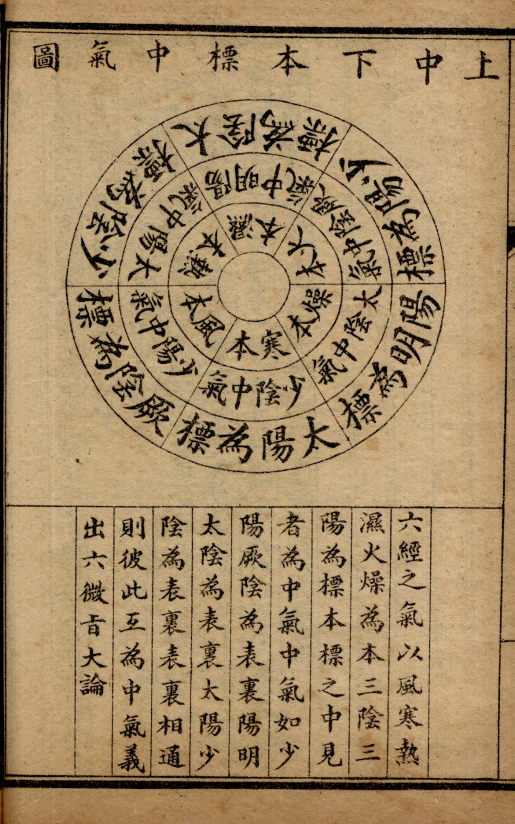 上中下本標中氣圖
太陽為標
少陰中氣
寒本
陽明為標
太陰中氣
燥本
少陽為標
厥陰中氣
火本
太陰為標
陽明中氣
濕本
少陰為標
太陽中氣
熱本
厥陰為標
少陽中氣
風本
六經之氣以風寒熱
濕火燥為本三陰三
陽為標本標之中見
者為中氣中氣如少
陽厥陰為表裏陽明
太陰為表裏太陽少
陰為表裏表裏相通
則彼此互為中氣義
出六微旨大論